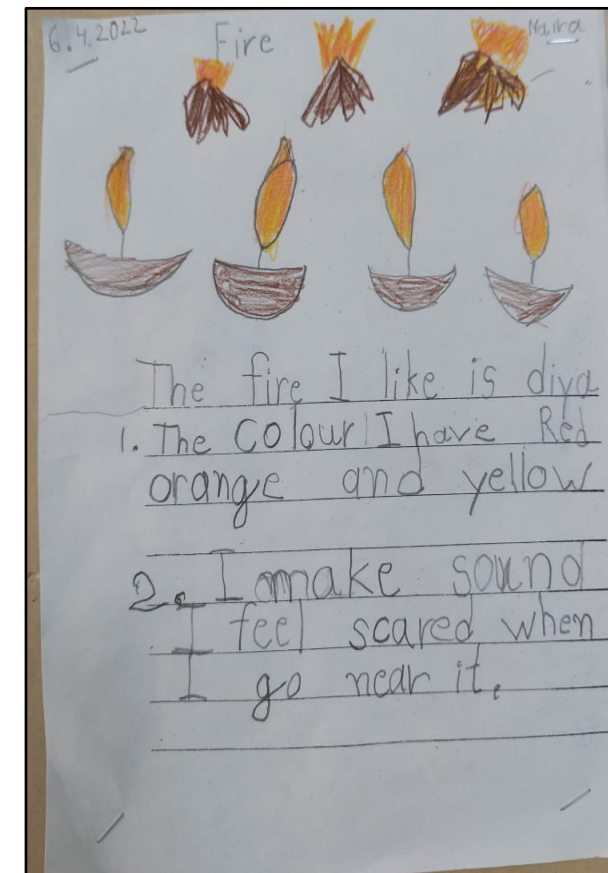 6.4.2022 Fire Naira
The fire I like is diya
1. The colour I have Red
orange and yellow
2. I make sound
I feel scared when
I go near it.